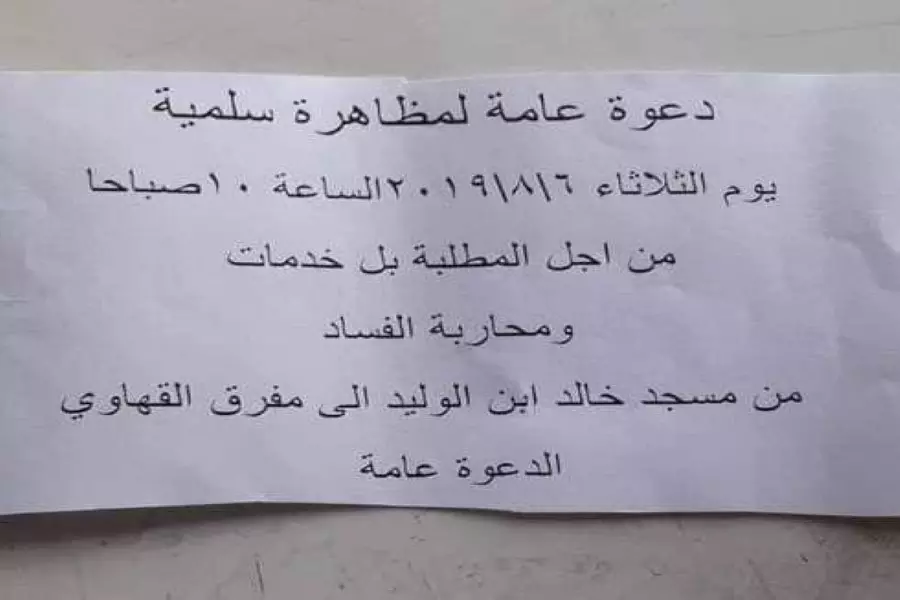 دعوة عامة لمظاهرة سلمية
يوم الثلاثاء ٢٠١٩\٨\٦ الساعة ١٠صباحا
من اجل المطلبة بل خدمات
ومحاربة الفساد
من مسجد خالد ابن الوليد الى مفرق القهاوي
الدعوة عامة